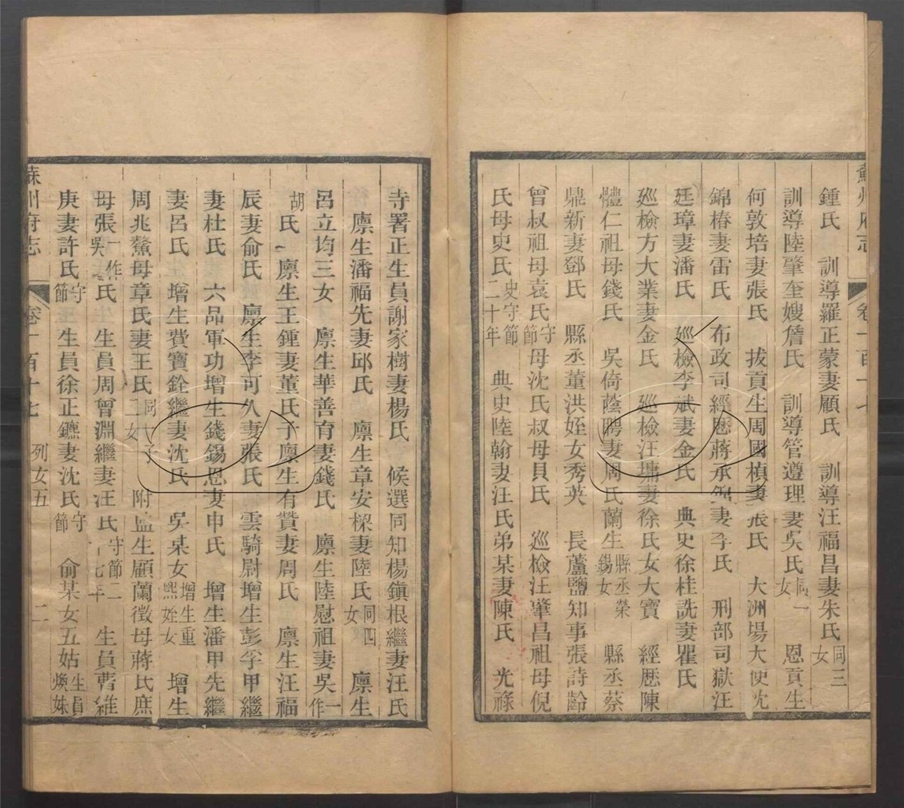 鍾氏　訓導羅正蒙妻顧氏　訓導汪福昌妻朱氏同三女
訓導陸肇奎嫂詹氏　訓導管遵理妻吳氏同一女　恩貢生
何敦培妻張氏　拔貢生周國楨妻張氏　大洲場大使沈
錦椿妻雷氏　布政司經歷蔣承妻李氏　刑部司獄汪
廷璋妻潘氏　巡檢李斌妻金氏　典史徐桂詵妻瞿氏
巡檢方大業妻金氏　巡檢汪墉妻徐氏女大寶　經歷陳
體仁祖母錢氏　吳倚蔭聘妻周氏蘭生縣丞榮錫女　縣丞蔡
鼎新妻鄧氏　縣丞董洪姪女秀英　長蘆鹽知事張詩齡
曾叔祖母袁氏守節母沈氏叔母貝氏　巡檢汪肇昌祖母倪
氏母史氏史守節二十年　典史陸翰妻汪氏弟某妻陳氏　光祿
寺署正生員謝家樹妻楊氏　候選同知楊鎮根繼妻汪氏
廩生潘福先妻邱氏　廩生章安樑妻陸氏同四女　廩生
呂立均三女　廩生華善育妻錢氏　廩生陸慰祖妻吳一作
胡氏　廩生王鍾妻董氏子廩生有贊妻周氏　廩生汪福
辰妻俞氏　廩生李可久妻張氏　雲騎尉增生彭孚甲繼
妻杜氏　六品軍功增生錢錫恩妻申氏　增生潘甲先繼
妻呂氏　增生費寶銓繼妻沈氏　吳某女增生重熙姪女　增生
周兆鰲母章氏妻王氏同一子二女　附監生顧蘭徵母蔣氏庶
母張一作吳氏　生員周曾淵繼妻汪氏守節二十七年　生員曹維
庚妻許氏守節　生員徐正鑣妻沈氏守節　俞某女五姑生員煥妹
蘇州府志　卷一百十七　列女五　二